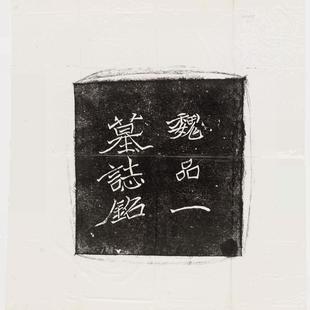 魏品一
墓誌銘